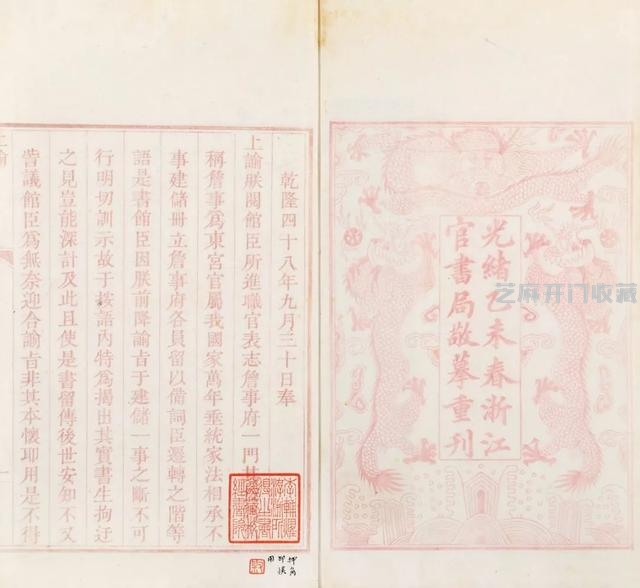 光緒乙未春浙江
官書局敬摹重刊
芝麻开门收藏
乾隆四十八年九月三十日奉
上諭朕閱館臣所進職官表志詹事府一門
稱詹事為東宮官屬我國家萬年垂統家法相承不
事建儲冊立詹事府各員留以備詞臣遷轉之階等
語是書館臣因朕前降諭旨于建儲一事之斷不可
行明切訓示故于按語內特為揭出其實書生拘迂
之見豈能深計及此且使是書留傳後世安知不又
訾議館臣為無奈迎合諭旨非其本懷即用是不得
上諭
押角
印模
用